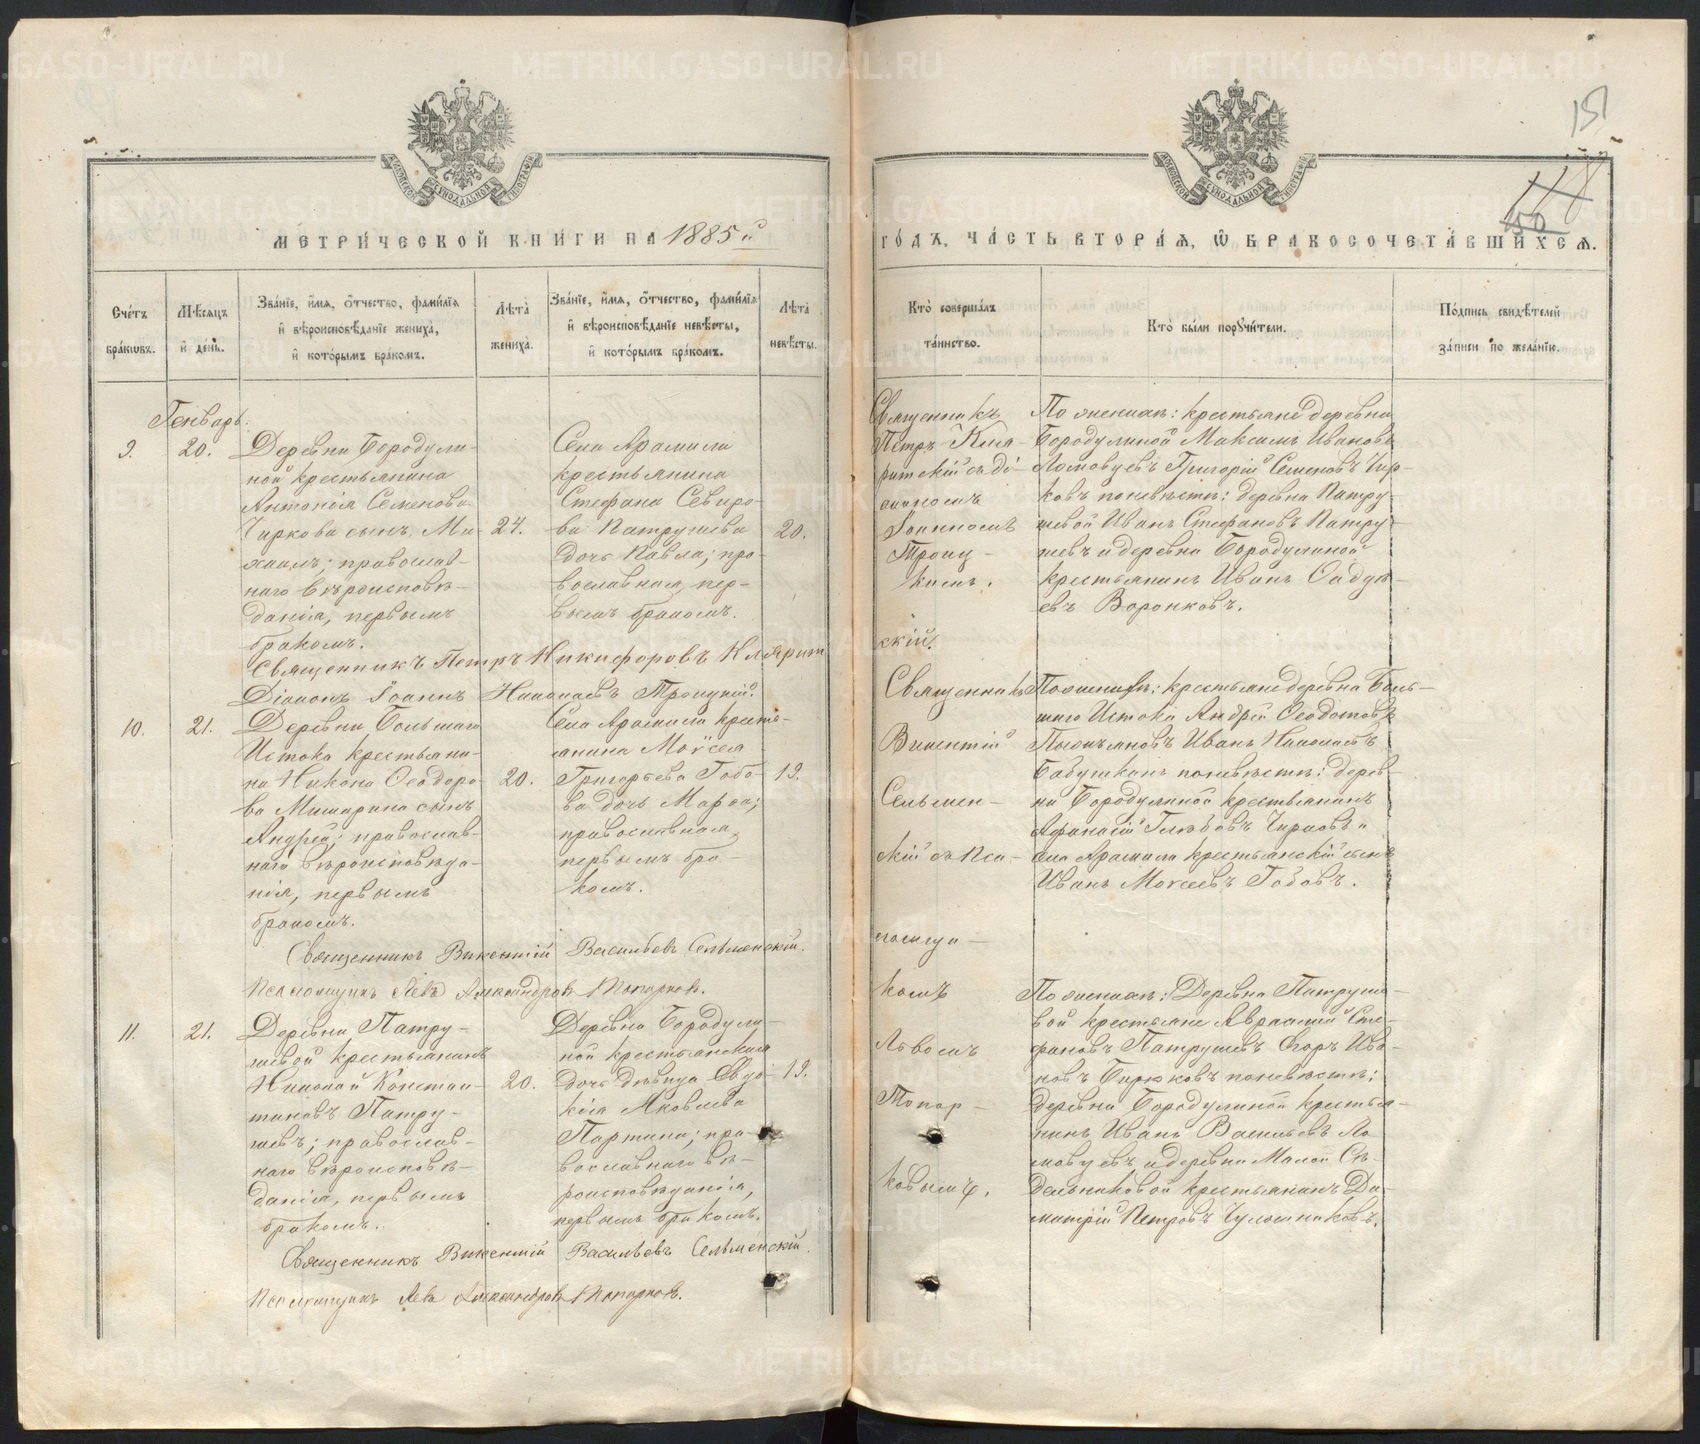 МЕТРИ́ЧЕСКОЙ КНИ́ГИ НА 1885й
Сче́тъ бра́кѡвъ.
Мѣ́сяцъ и҆ де́нь.
Зва́нїе, и҆́мя, ѻ҆́тчество, фами́лїя
и҆ вѣроисповѣ́данїе жениха̀,
и҆ кото́рымъ бра́комъ.
Лѣта̀ жениха̀.
Зва́нїе, и҆́мя, ѻ҆́тчество, фами́лїя
и҆ вѣроисповѣ́данїе невѣ́сты,
и҆ кото́рымъ бра́комъ.
Лѣта̀ невѣ́сты.
Генварь.
9.
20.
Деревни Бородули-
ной крестьянина
Антонія Семенова
Чиркова сынъ Ми-
хаилъ; православ-
наго вѣроисповѣ-
данія, первымъ
бракомъ.
27.
Села Арамили
крестьянина
Стефана Севиро-
ва Патрушева
дочь Павла; пра-
вославная, пер-
вымъ бракомъ.
20.
Священникъ Петръ Никифоровъ Кляритскій.
Діаконъ Іоаннъ Николаевъ Троицкій.
10.
21.
Деревни Большаго
Истока крестьяни-
на Никона Ѳеодоро-
ва Мишарина сынъ
Андрей; православ-
наго вѣроисповѣда-
нія, первымъ
бракомъ.
20.
Села Арамили кресть-
янина Моѵсея
Григорьева Гобо-
ва дочь Марѳа;
православная,
первымъ бра-
комъ.
19.
Священникъ Викентій Васильевъ Сельменскій.
Псаломщикъ Левъ Александровъ Топорковъ.
11.
21.
Деревни Патру-
шевой крестьянинъ
Николай Констан-
тиновъ Патру-
шевъ; православ-
наго вѣроисповѣ-
данія, первымъ
бракомъ.
20.
Деревни Бородули-
ной крестьянская
дочь дѣвица Евдо-
кія Яковлева
Партина; пра-
вославнаго вѣ-
роисповѣданія,
первымъ бракомъ.
19.
Священникъ Викентій Васильевъ Сельменскій.
Псаломщикъ Левъ Александровъ Топорковъ.
151
118
150
ГО́ДЪ, ЧА́СТЬ ВТОРА́Я, Ѿ БРАКОСОЧЕТА́ВШИХСЯ.
Кто̀ соверша́лъ та́инство.
Кто̀ бы́ли поручи́тели.
По́дпись свидѣ́телей за́писи по жела́нїю.
Священникъ
Петръ Кля-
ритскій съ дi-
акономъ
Іоанномъ
Троиц-
кимъ.
По женихѣ: крестьяне деревни
Бородулиной Максимъ Ивановъ
Ломовцевъ Григорій Семеновъ Чир-
ковъ по невѣстѣ: деревни Патру-
шевой Иванъ Стефановъ Патру-
шевъ и деревни Бородулиной
крестьянинъ Иванъ
Воронковъ.
Священникъ
Викентій
Сельмен-
скій съ Пса-
ломщи-
комъ
Львомъ
Топор-
ковымъ.
По женихѣ: крестьяне деревни Боль-
шаго Истока Андрей Ѳеодотовъ
Иванъ Николаевъ
Бабушкинъ по невѣстѣ: дерев-
ни Бородулиной крестьянинъ
Афанасій Глѣбовъ Чирковъ и
села Арамили крестьянскій сынъ
Иванъ Моѵсеевъ Гобовъ.
По женихѣ: Деревни Патруше-
вой крестьяне Авраамій Сте-
фановъ Патрушевъ Егоръ Ива-
новъ Бирюковъ по невѣстѣ:
деревни Бородулиной крестья-
нинъ Иванъ Васильевъ Ло-
мовцевъ и деревни Малой Сѣ-
дельниковой крестьянинъ Ди-
митрій Петровъ Чуломинковъ.
METRIKI.GASO-URAL.RU